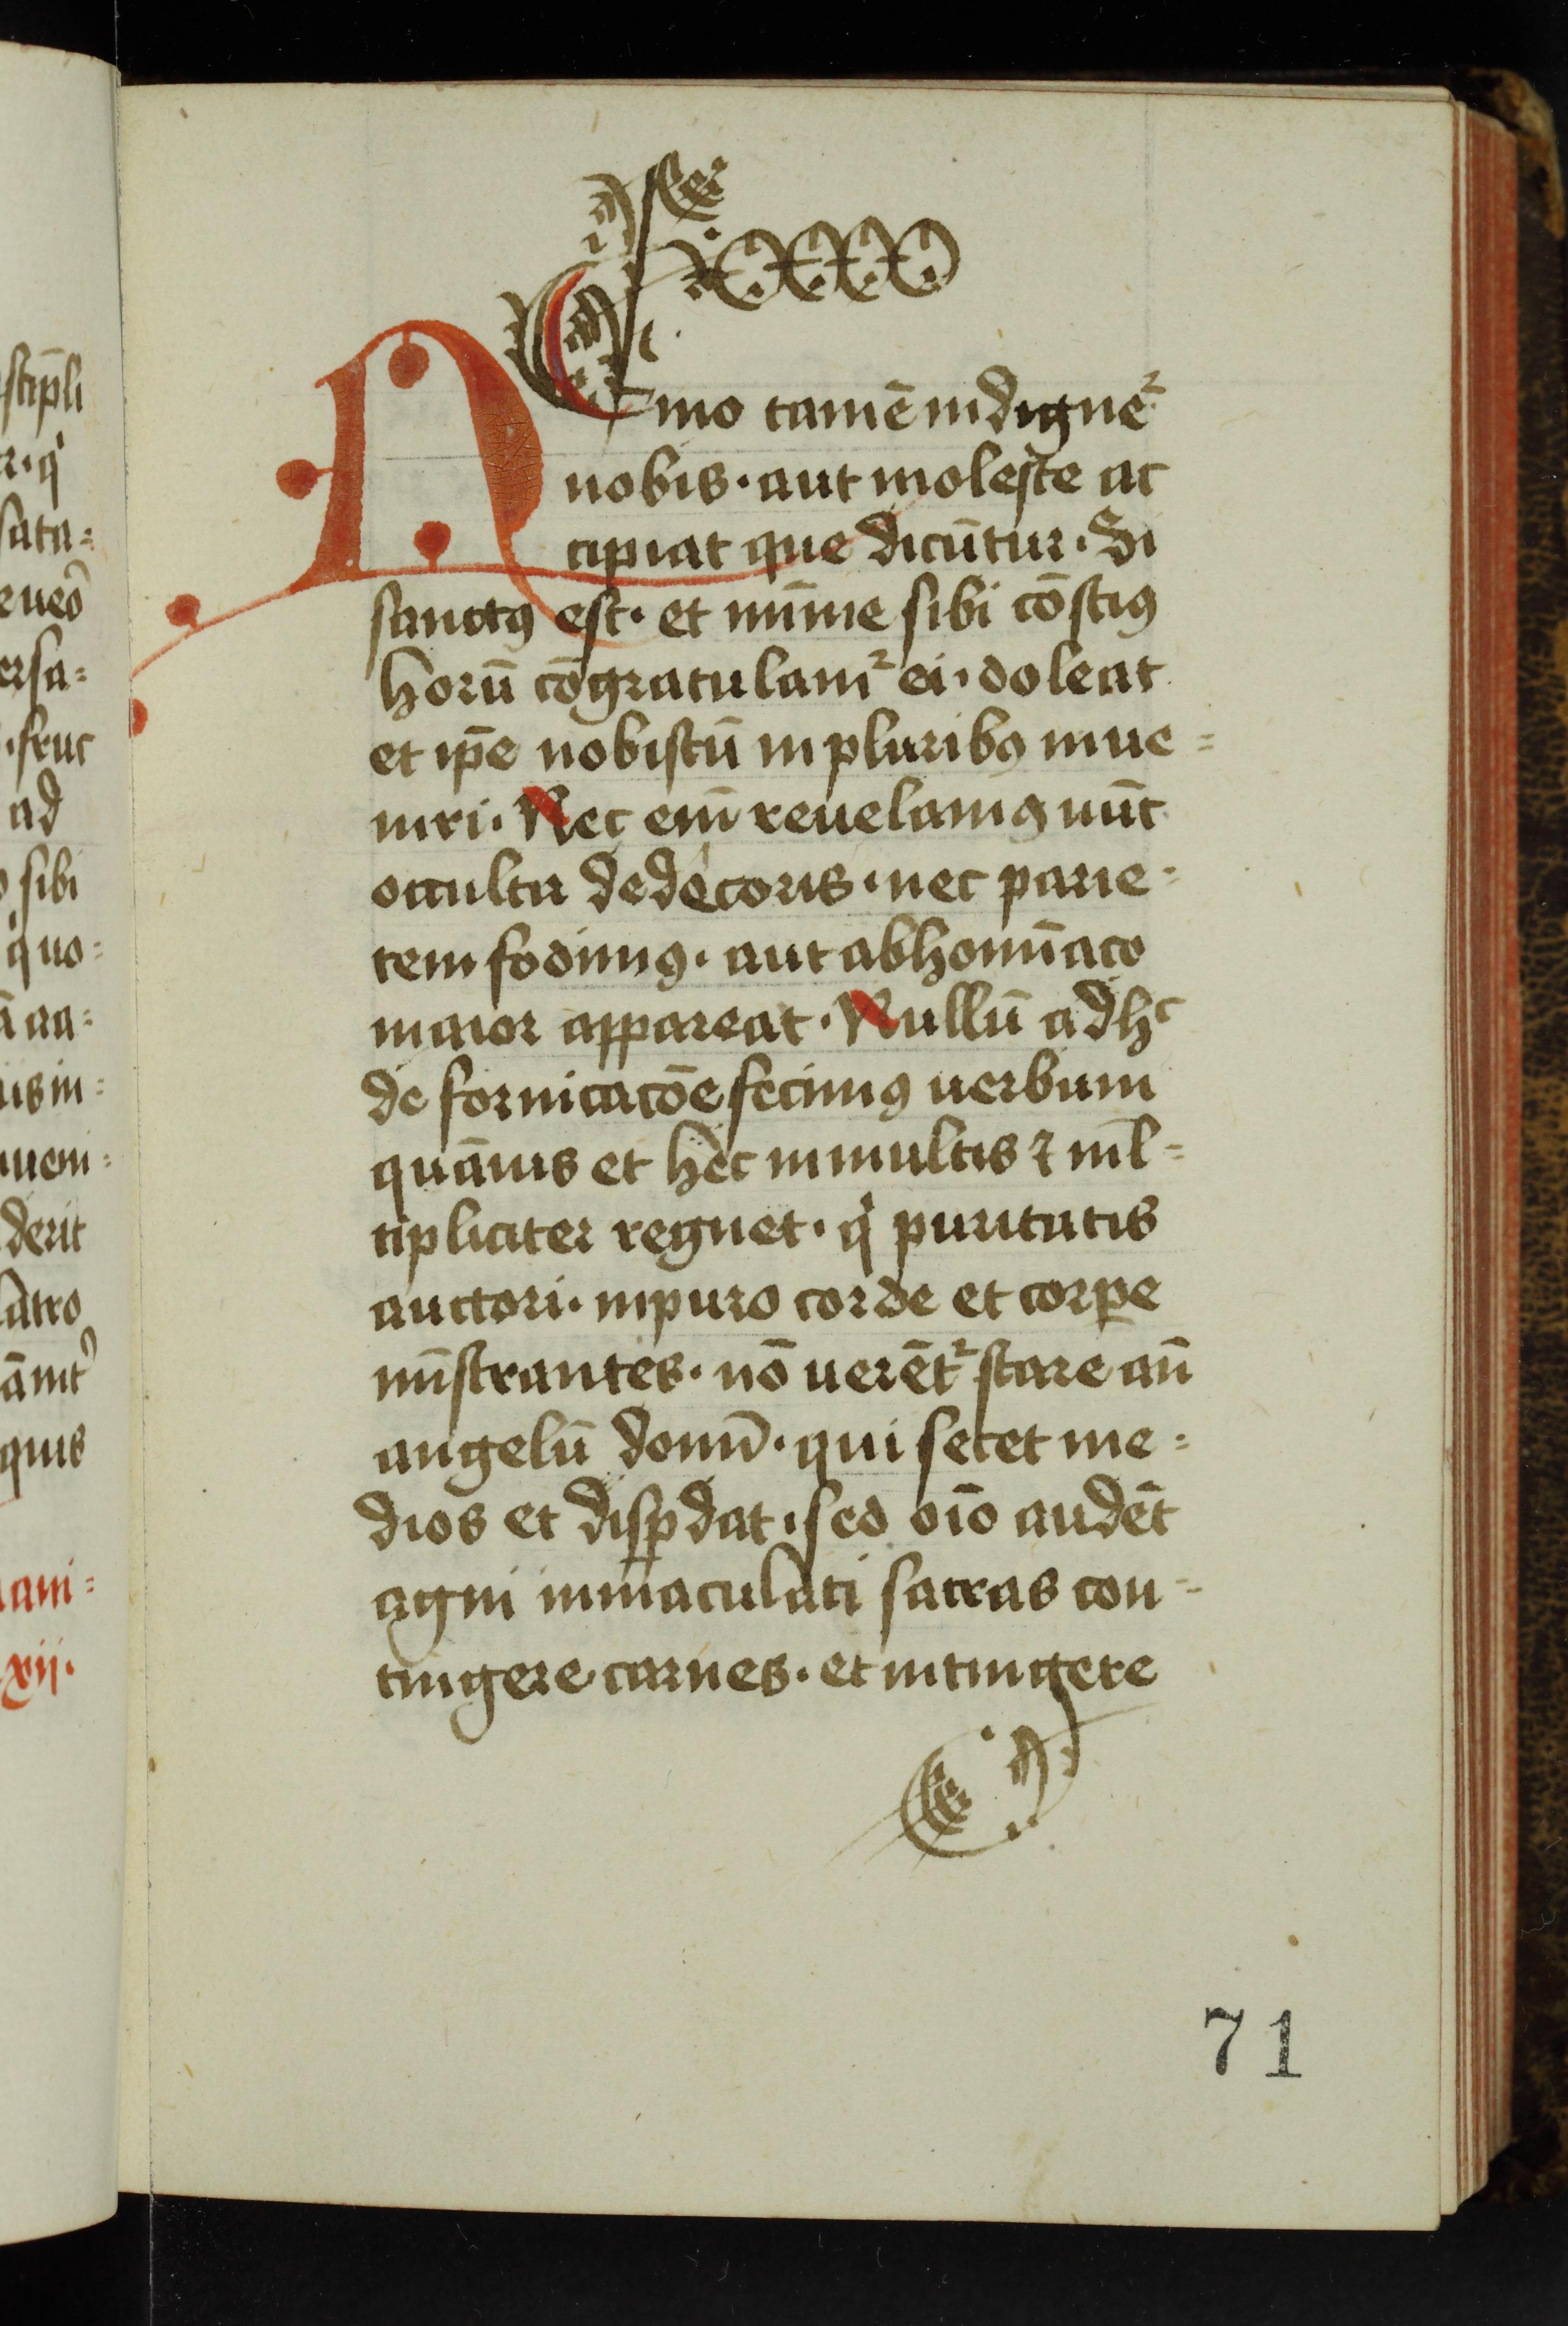 NEmo tamē indignet᷑
nobis · aut moleste ac
cipiat que dicūtur · Si
sanctꝰ est · et mīīme sibi cōsciꝰ
horū cōgratulam᷑ ei · doleat
et ip̄e nobiscū in pluribꝰ inue=
niri · Nec em̄ reuelamꝰ nūc
occulta dedecoris · nec parie=
tem fodimꝰ · aut abhomīaco
maior appareat · Nullū adhᶜ
de fornicacōe fecimꝰ uerbum
quāuis et hec in multis ⁊ ml̄=
tipliciter regnet · q̇ puritatis
auctori · inpuro corde et corꝑe
mīstrantes · nō uerēt᷑ stare an̄
angelū domī · qui secet me=
dios et disꝑdat · sed oīo audēt
agni inmaculati sacras con=
tingere carnes · et intingere
71
scipl̄i
q̇
sata=
ersa=
· fruc
ad
sibi
quo=
uem=
derit
quis
xij ·